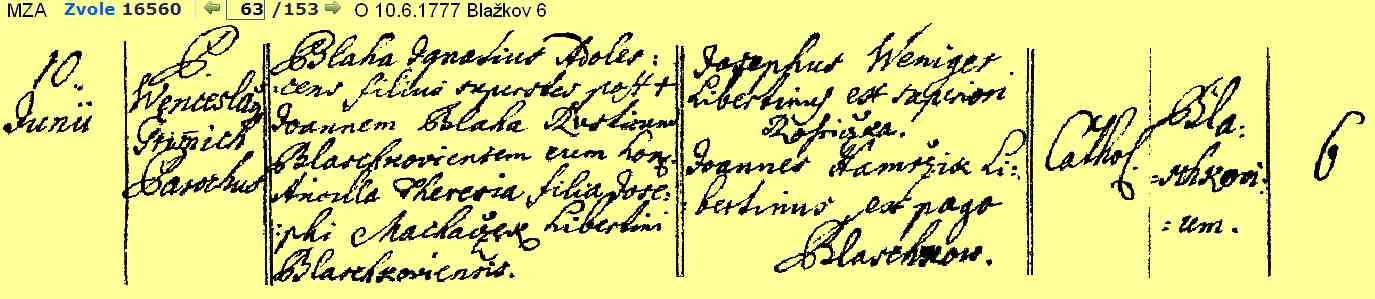 MZA Zvole 16560 63 /153 O 10.6.1777 Blažkov 6
10.
Junii
P.
Wenceslaus
Parochus
Blaha Ignatius Adoles:
:cens filius superstes post +
Joannem Blaha Rusticum
Blaschkoviensem cum
Ancilla Theresia filia Jose-
:phi Machaczek Libertini
Blaschkoviensis.
Josephus Weniger
Libertinus ex superiori
Rosiczka.
Joannes Li-
:bertinus ex pago
Blaschkow.
Cathol.
Bla:
:schkovi:
:um.
6